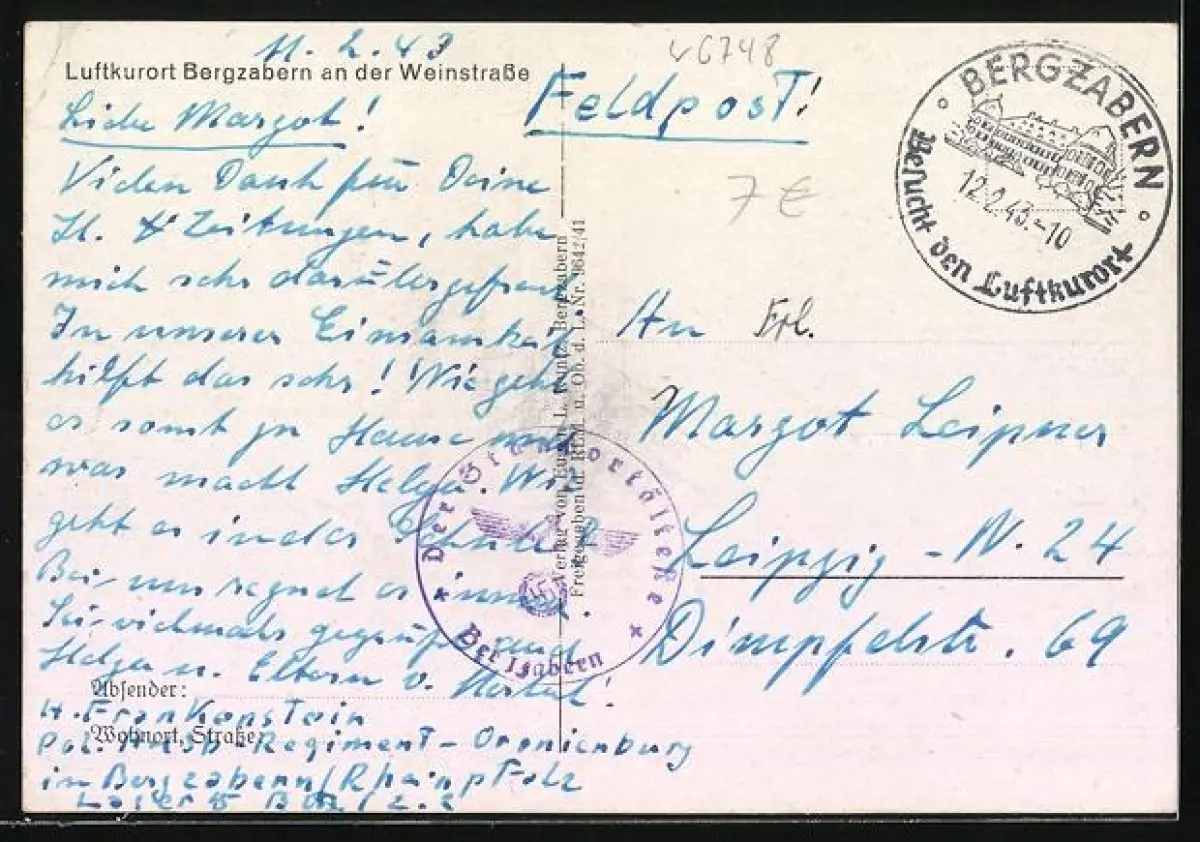 11.2.43
Luftkurort Bergzabern an der Weinstraße
Liebe Margot!
Vielen Dank für Deine
Zeitungen, habe
mich sehr darüber gefreut
In unserer Einsamkeit
hilft das sehr! Wie geht
es sonst zu Hause und
was macht Helga. Wie
geht es in der Schule?
Bei uns regnet es immer.
Sei vielmals gegrüßt auch
Helga u. Eltern v. 
Absender:
H. Frankenstein
Wohnort, Straße:
Regiment - Oranienburg
in Bergzabern/Rheinpfalz
Lager
Verlag von L. Bergzabern
Freigegeben d. u. Ob. d. L. Nr. 9642/41
Der Standortälteste
Bergzabern
v6748
Feldpost!
7 €
BERGZABERN
12.2.43.-10
Besucht den Luftkurort
An Frl.
Margot Leipner
Leipzig - N. 24
Dimpfelstr. 69